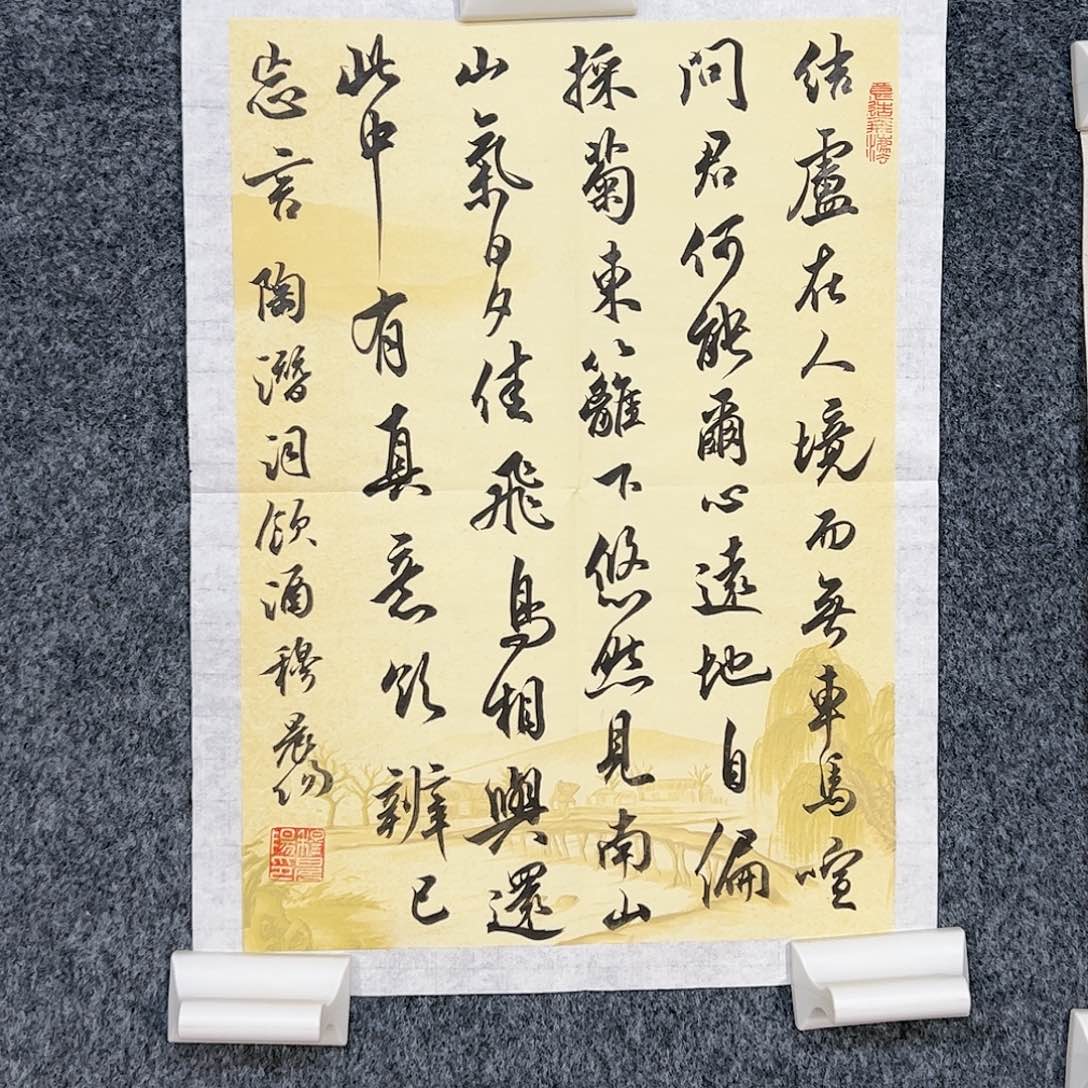 結盧在人境而無車馬喧
問君何能爾心遠地自偏
採菊東籬下悠然見南山
山氣日夕佳飛鳥相與還
此中有真意欲辨已
忘言 陶潛詞飲酒穆晨